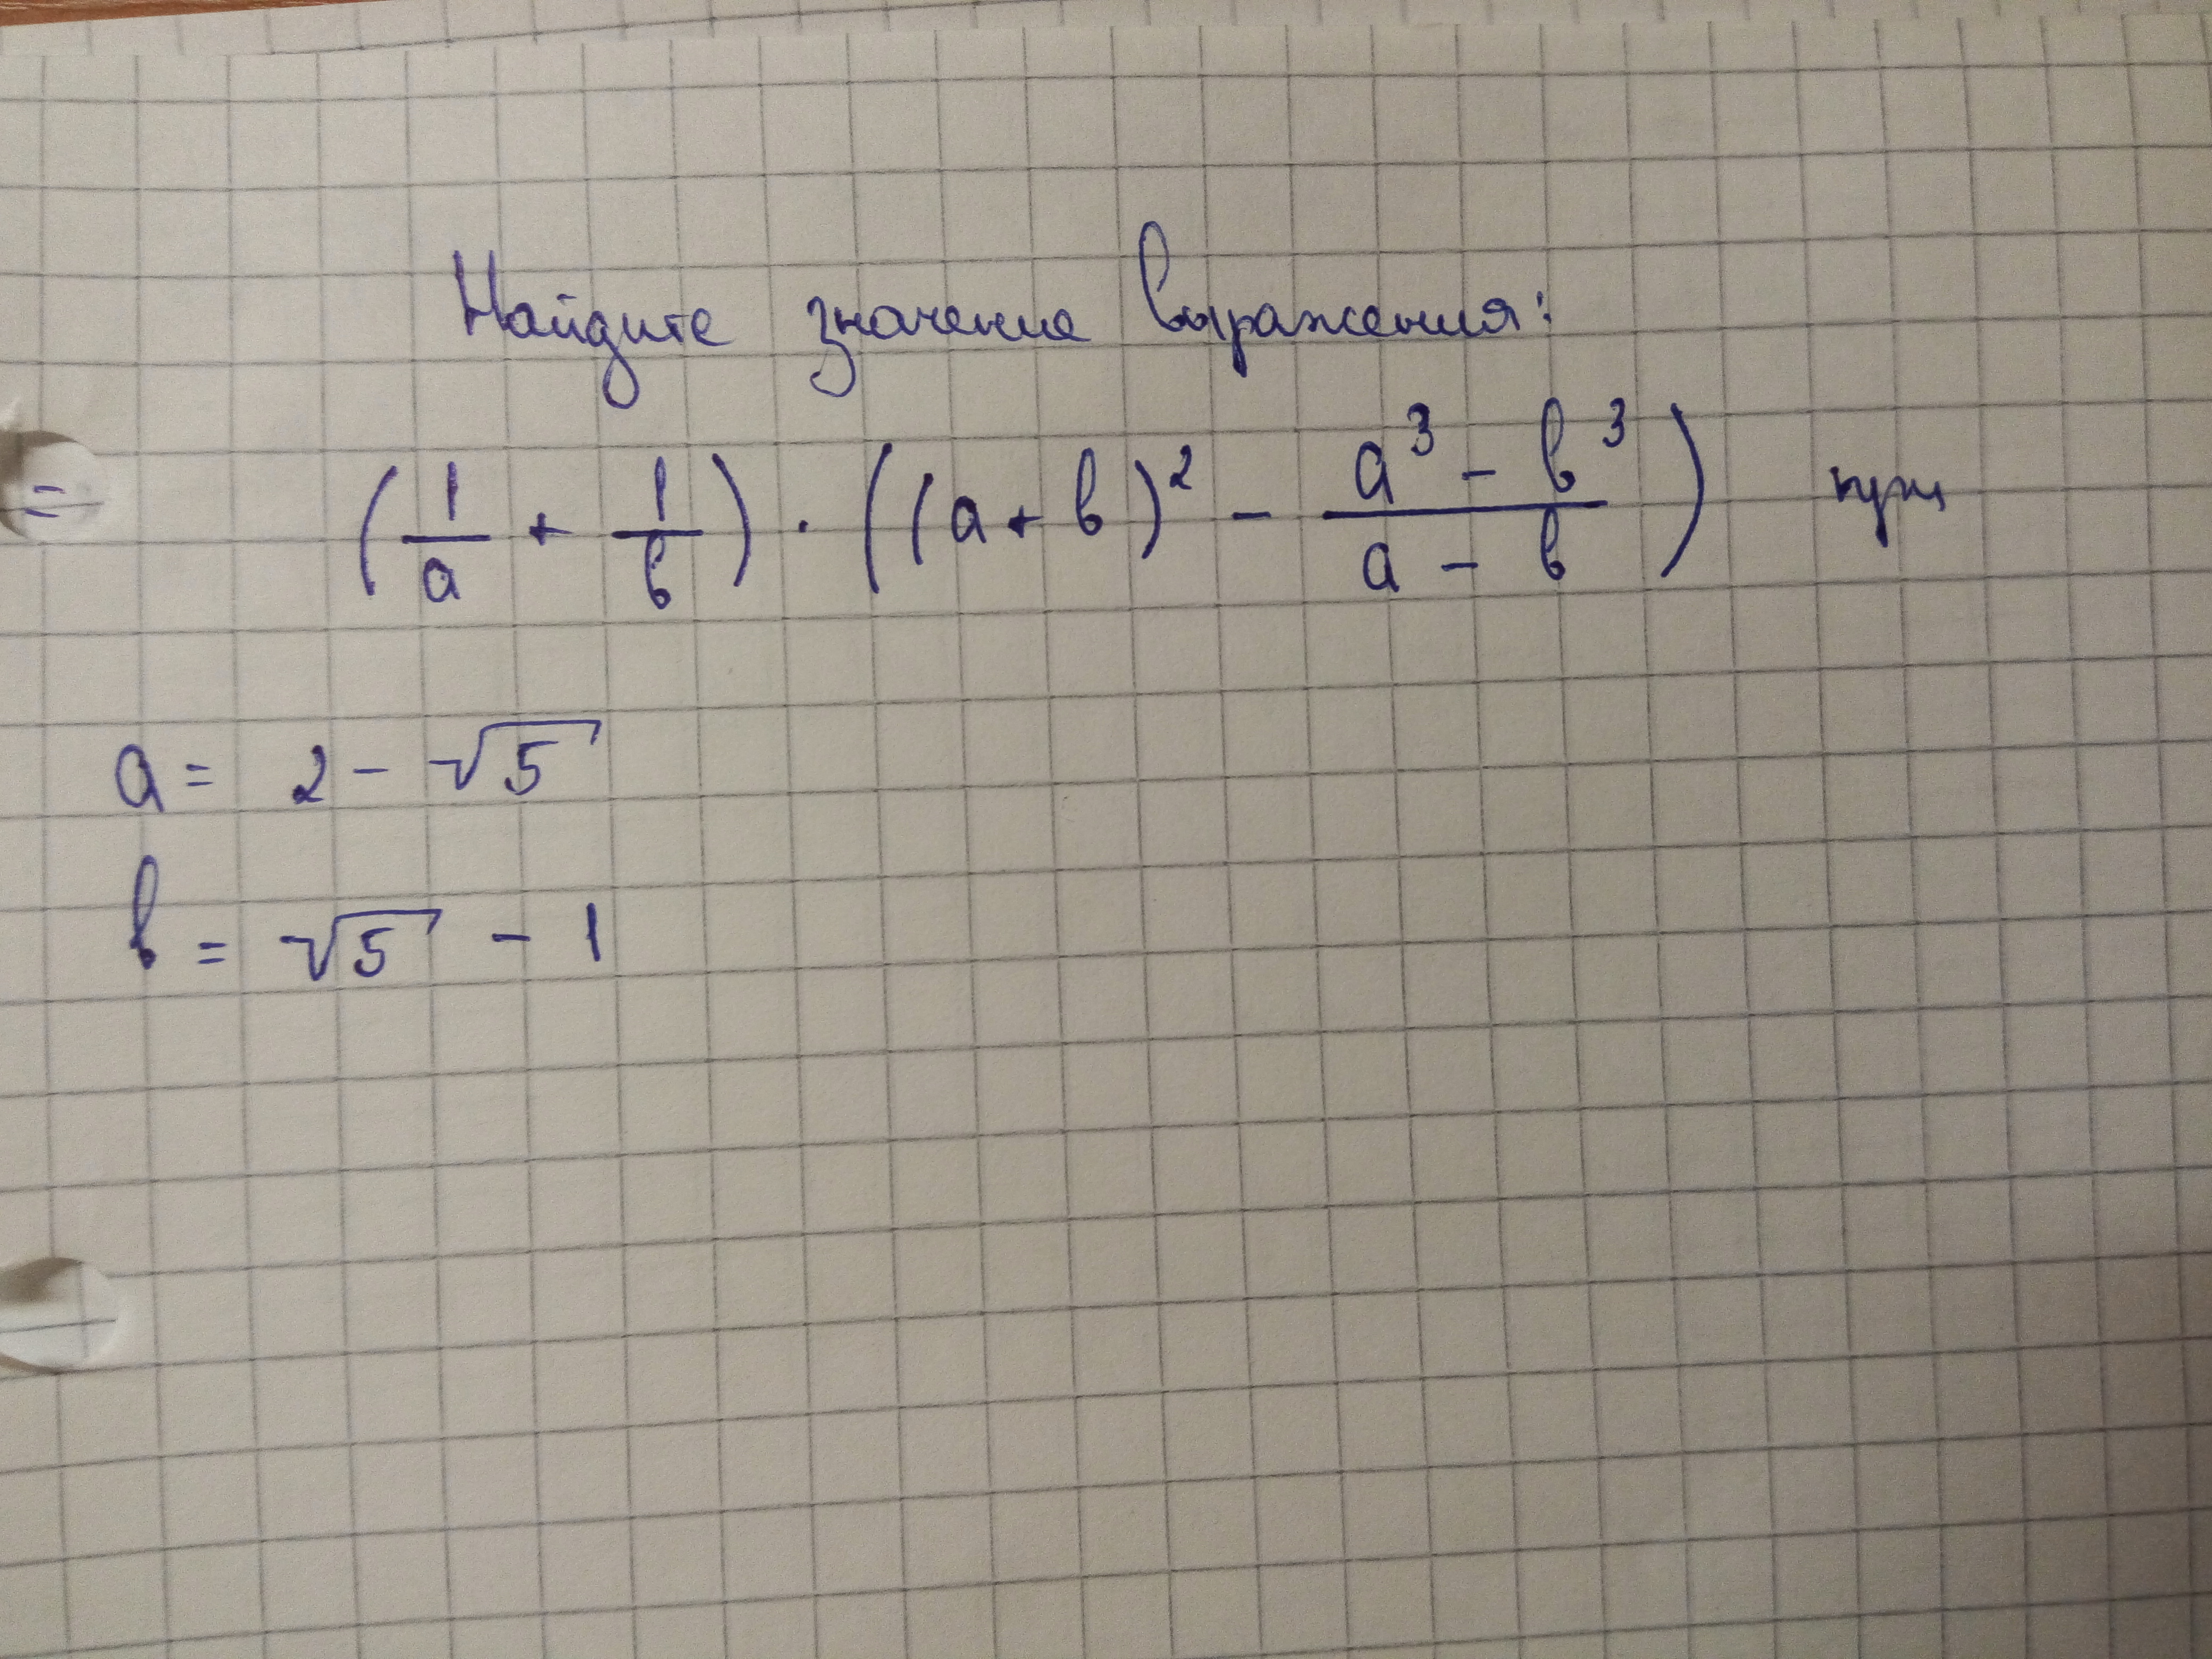 Найдите значение выражения:
= (1/a + 1/b) · ((a + b)² - (a³ - b³)/(a - b)) при
a = 2 - √5
b = √5 - 1